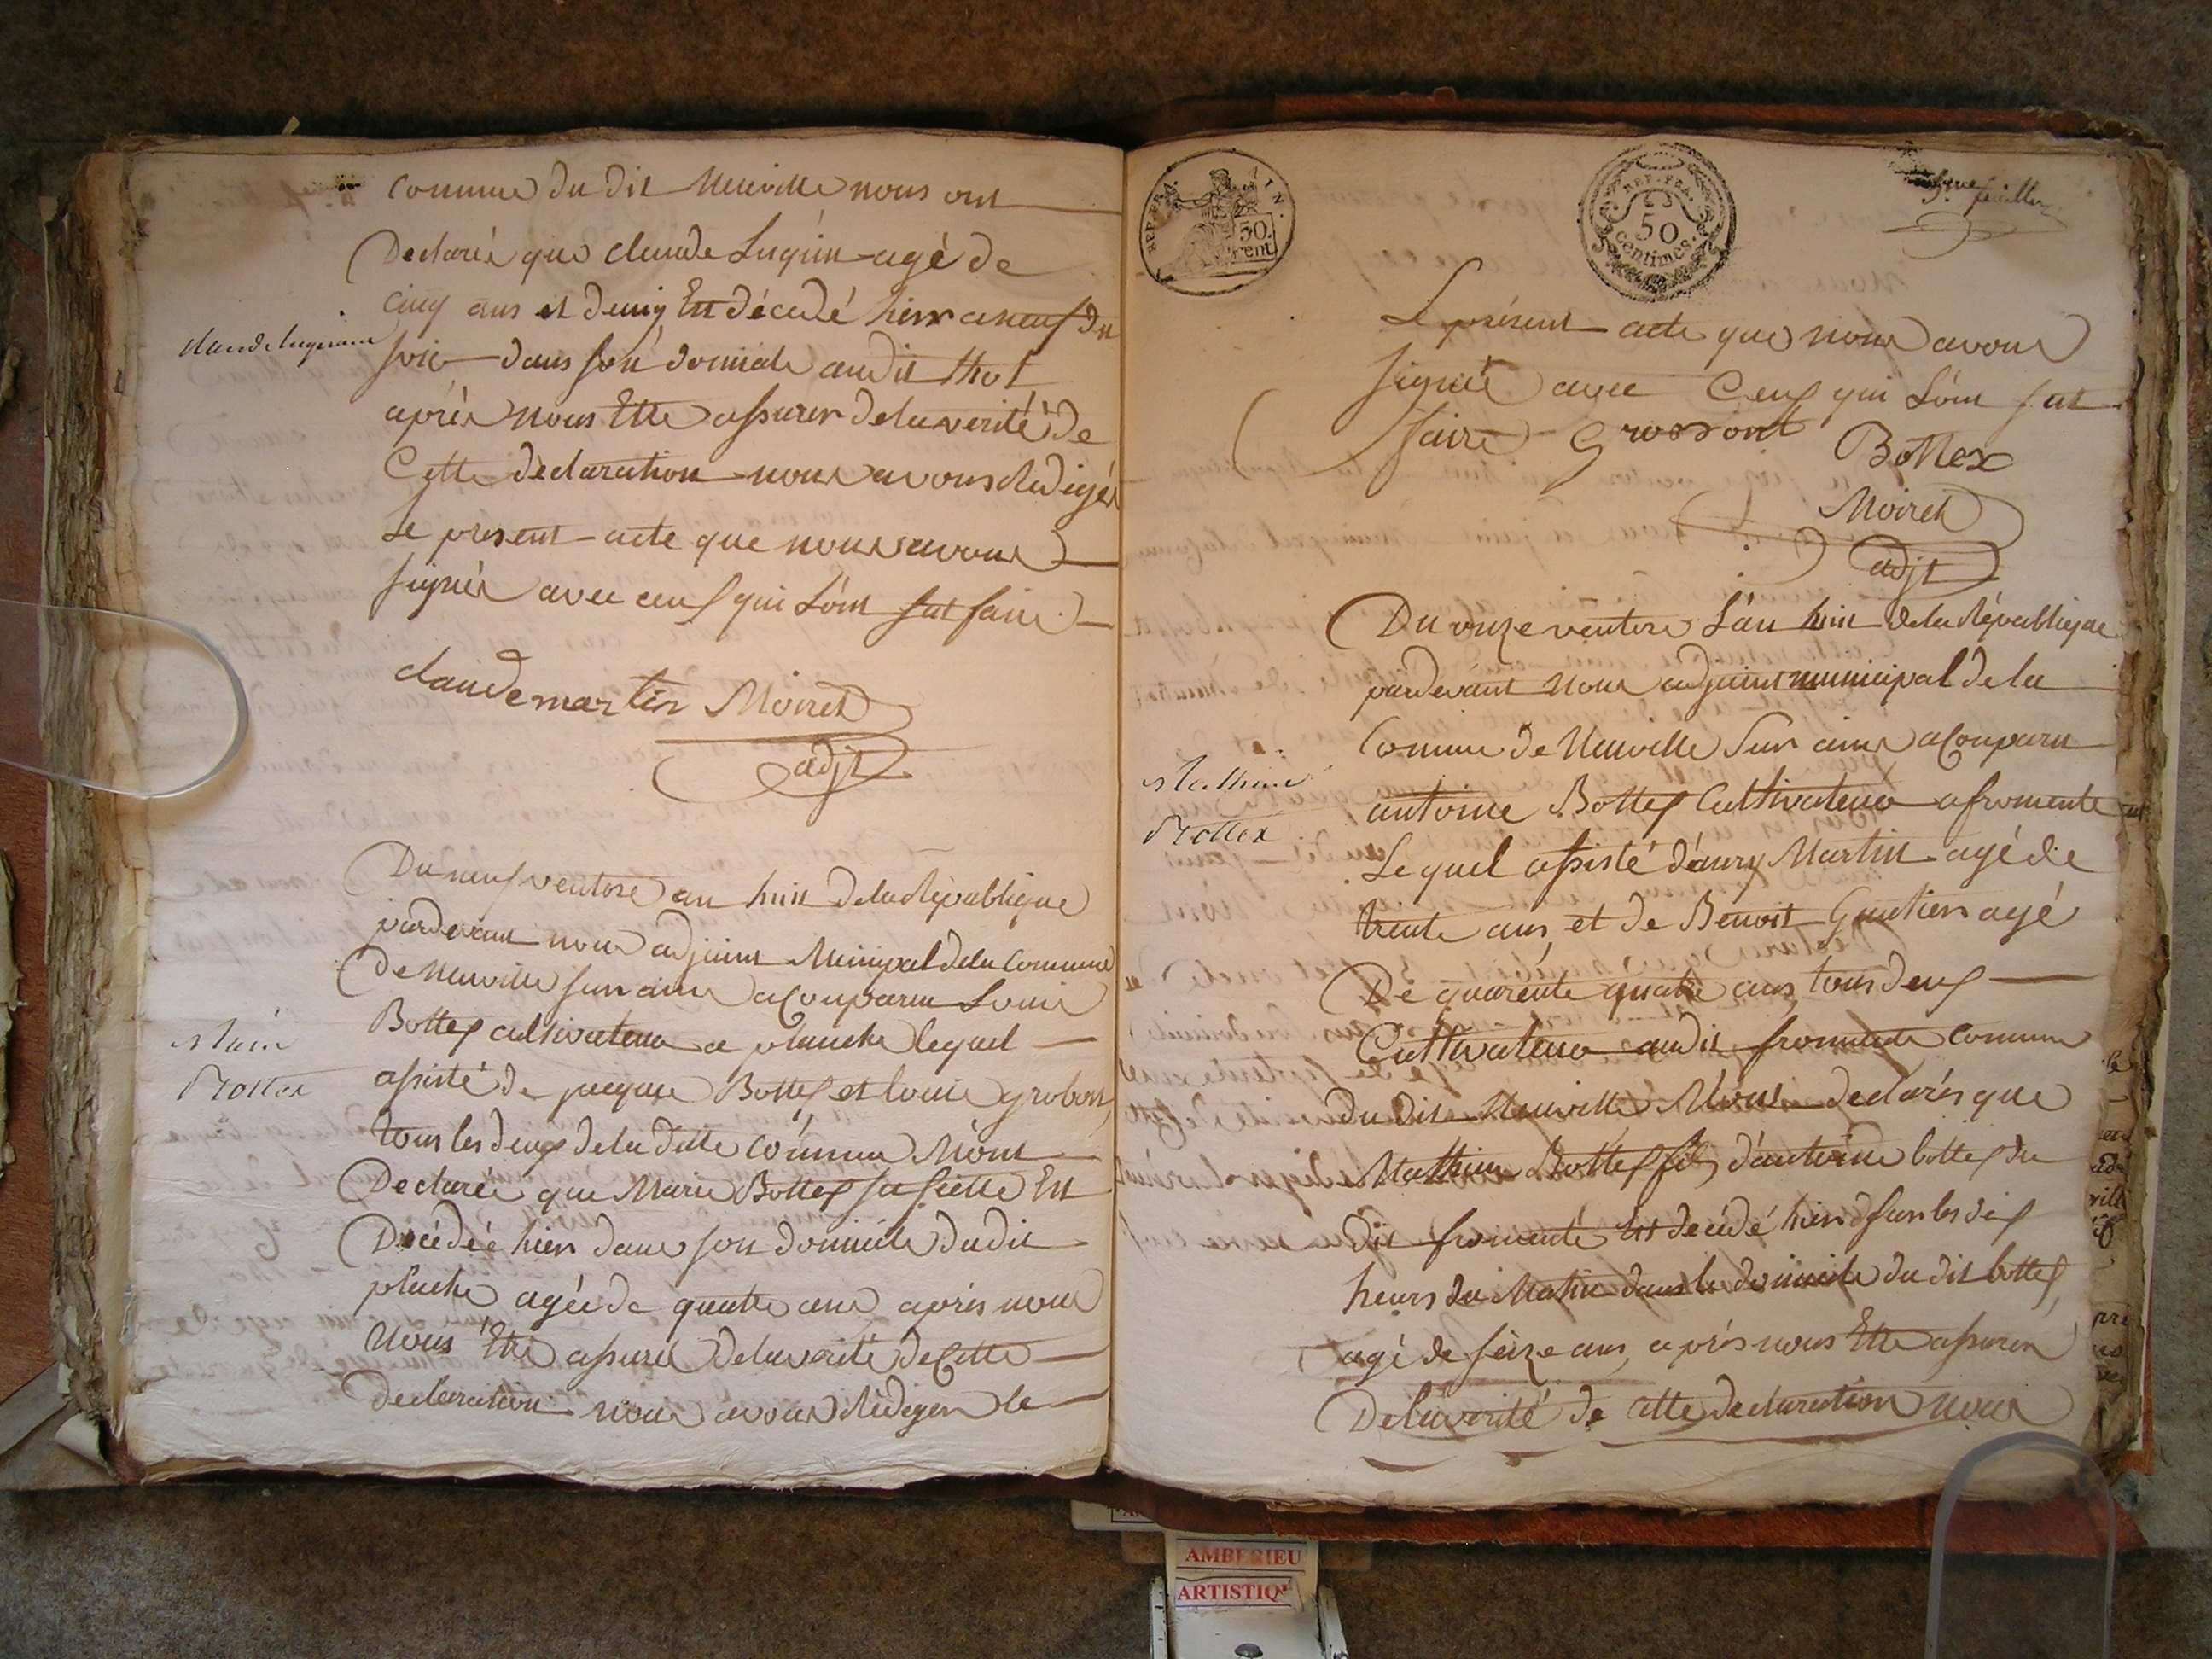 commune du dit Neuville nous ont
Declarés que claude Luquin agé de
cinq ans et demy Est décédé hier a neuf du
soir dans son domicile audit thol
après nous Etre assurer de la verité de
Cette déclaration nous avons Redigés
Le present acte que nous avons
signés avec ceux qui L'ont sut faire
claude martin Moiret
adjt
Du neuf ventose an huit de la République
pardevant nous adjoint Municipal de la Commune
De Neuville sur ains a Comparu Louis
Bottex cultivateur a planche lequel
Marie
Bottex
assisté de jacque Bottex et louis grobon
tous les deux de la ditte commune N'ont
Declarée que Marie Bottex sa fiette Est
Décédée hier dans son domicile du dit
planche agée de quatre ans après nous
Nous Etre assuré de la verité de Cette
declaration nous avons Rediger le
REP. FRA.
50
cent.
REP. FRA.
50
centimes.
feuillet
Le présent acte que nous avons
signés avec Ceux qui L'ont sut
faire Grossont Bottex
Moiret
adjt
Du onze ventose L'an huit de la République
pardevant nous adjoint municipal de la
Commune de Neuville sur ains a Comparu
Mathieu
Bottex
antoine Bottex Cultivateur a fromente
Lequel assisté d'aury Martin agé de
trente ans, et de Benoit Gautier agé
De quarente quatre ans, tous deux
Cultivateur audit fromente Commune
du dit Neuville N'ous declarés que
Mathieu Bottex fils d'antoine bottex du
dit fromente Est decédé hier sur les dix
heurs du Matin dans le domicile du dit bottex
agé de seize ans, après nous Etre assurer
De la verité de cette declaration nous
AMBERIEU
ARTISTIQ